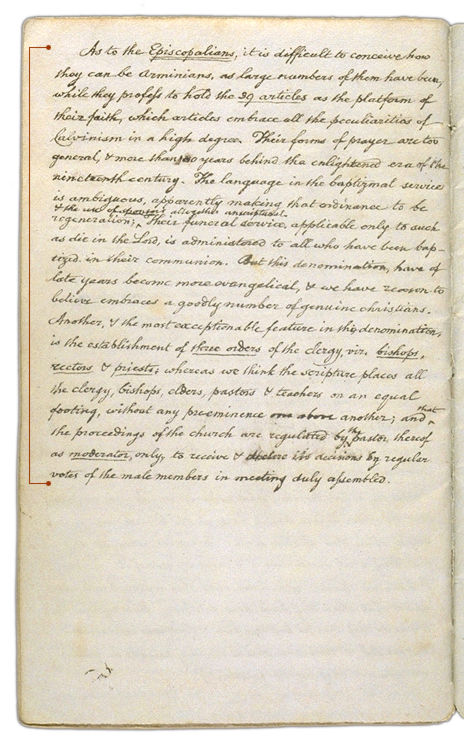 As to the Episcopalians, it is difficult to conceive how
they can be Arminians, as large numbers of them have been,
while they profess to hold the 39 articles as the platform of
their faith, which articles embrace all the peculiarities of
Calvinism in a high degree. Their forms of prayer are too
general, & more than 100 years behind the enlightened era of the
nineteenth century. The language in the baptismal service
is ambiguous, apparently making that ordinance to be
& the use of sponsors altogether unscriptural.
regeneration; Their funeral service, applicable only to such
as die in the Lord, is administered to all who have been bap-
tized in their communion. But this denomination, have of
late years become more evangelical, & we have reason to
believe embraces a goodly number of genuine christians.
Another, & the most exceptionable feature in this denomination,
is the establishment of three orders of the clergy, viz, bishops,
rectors & priests; whereas we think the scripture places all
the clergy, bishops, elders, pastors & teachers on an equal
footing, without any preeminence one above another; and that
the proceedings of the church are regulated by the pastor thereof
as moderator, only, to receive & declare its decisions by regular
votes of the male members in meeting duly assembled.